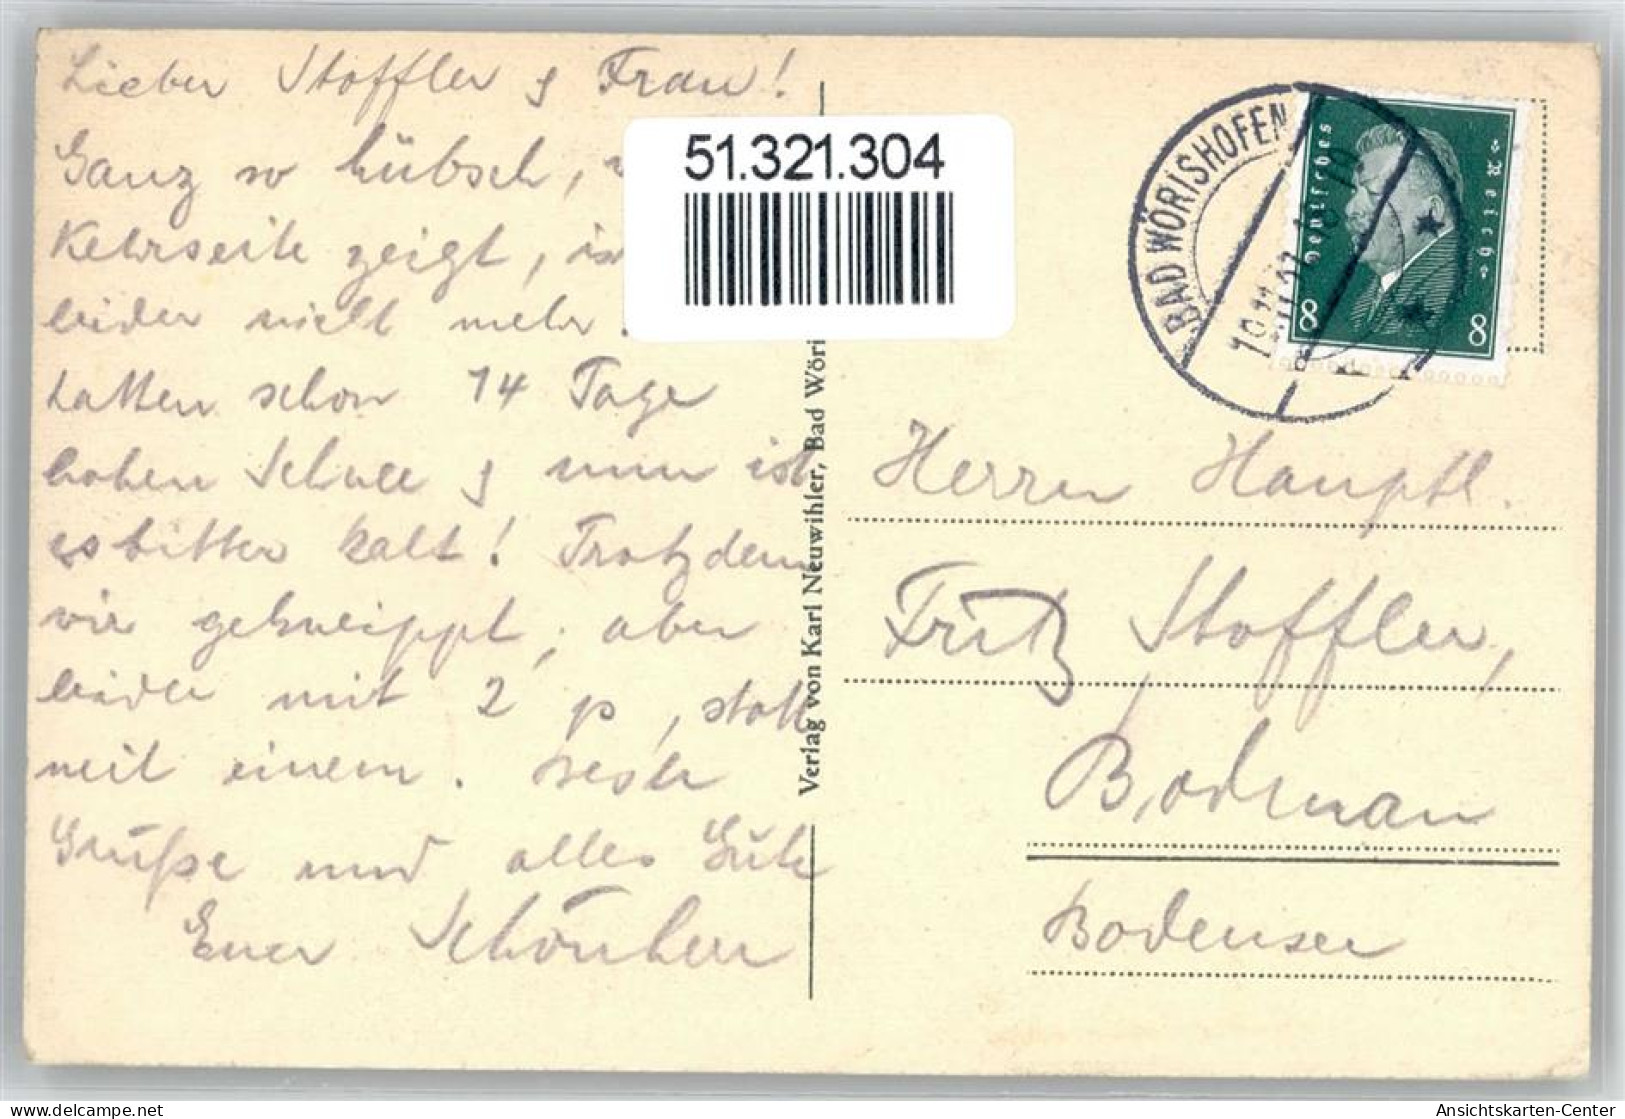 Lieber Stoffler & Frau!
Ganz so hübsch,
Kehrseite zeigt, ist
leider nicht mehr.
hatten schon 14 Tage
hohen Schnee & nun ist
es bitter kalt! Trotzdem
wir gekneippt, aber
leider mit 2 p, statt
mit einem. Beste
Grüße und alles Gute
Euer
51.321.304
Verlag von Karl Neuwihler, Bad Wöri
BAD WÖRISHOFEN
Deutsches Reich
8 8
Herrn Hauptl.
Fritz Stoffler,
Bodman
Bodensee
Ansichtskarten-Center